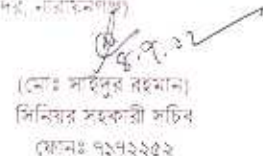 ৪.৭.১২
(মোঃ সাইদুর রহমান)
সিনিয়র সহকারী সচিব
ফোনঃ ৭১৭২২৫২